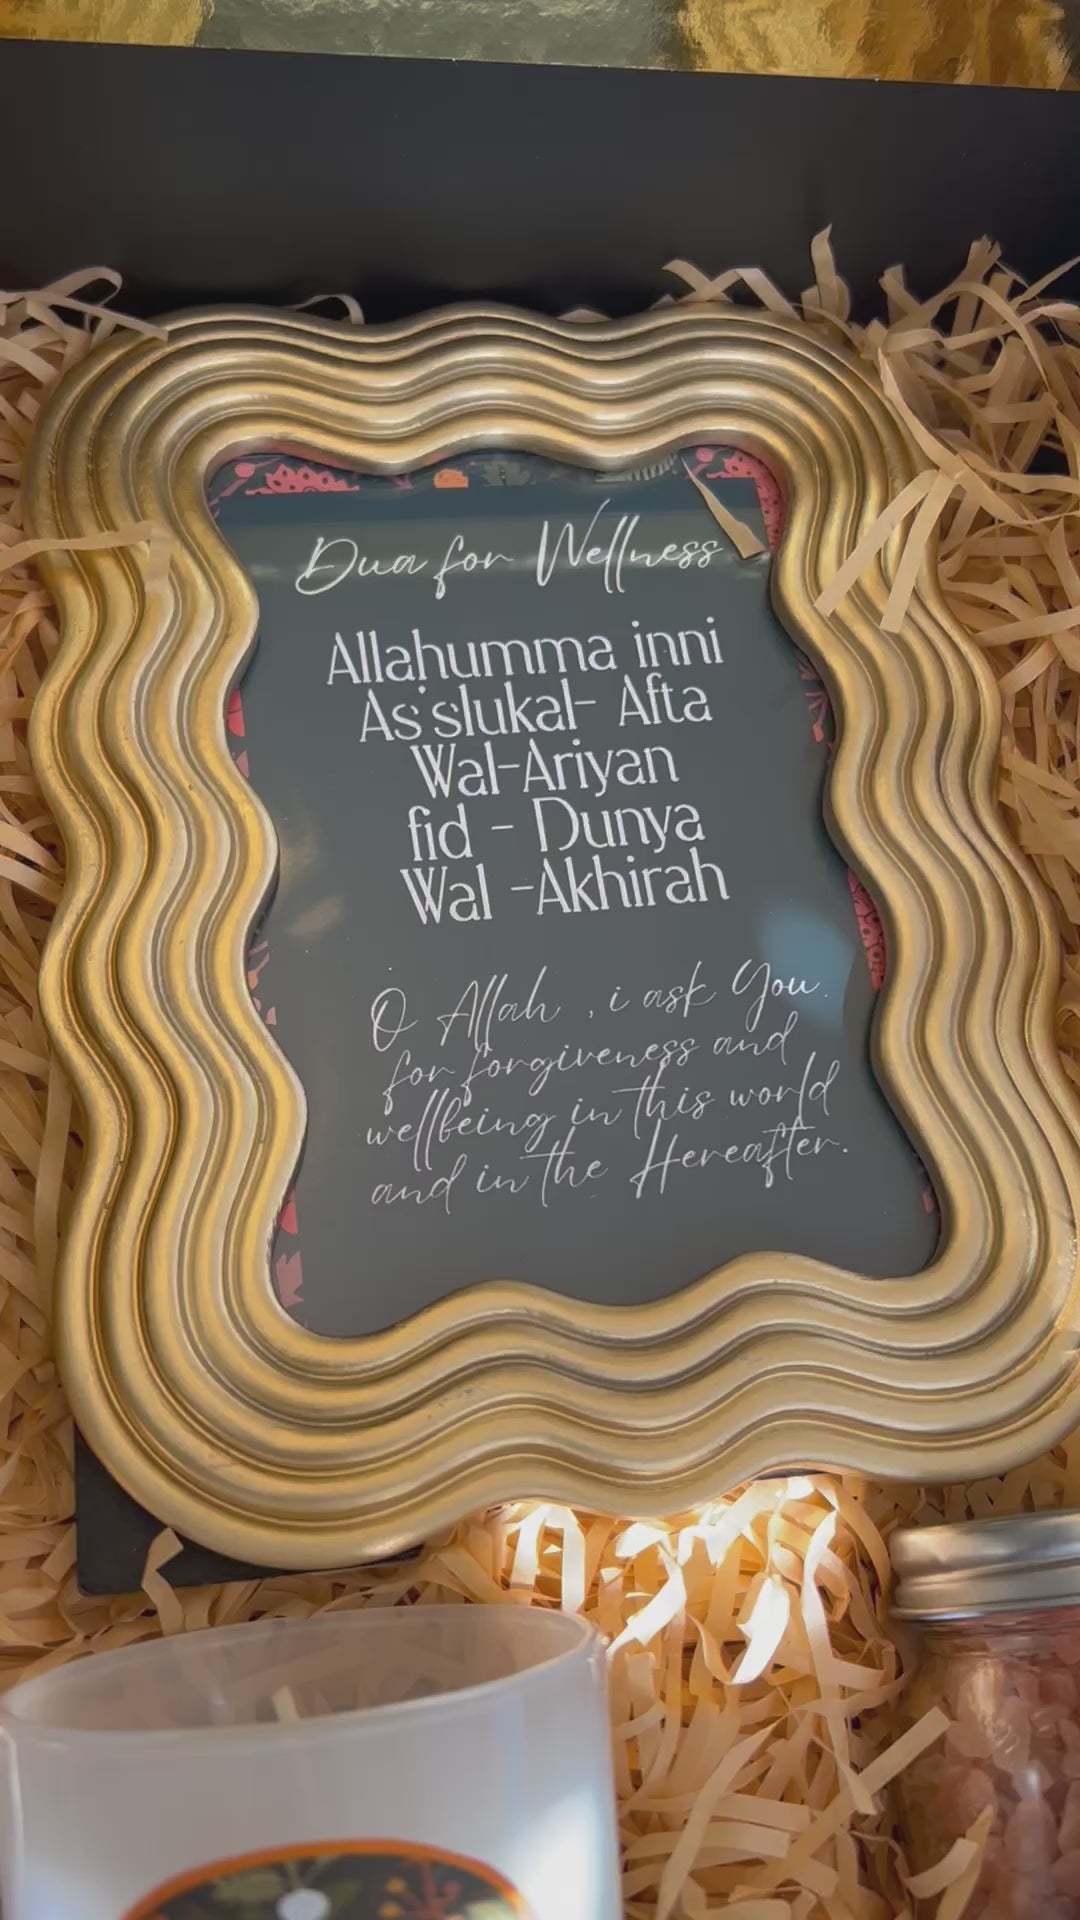 Dua for Wellness
Allahumma inni
As'slukal- Afta
Wal-Ariyan
fid - Dunya
Wal -Akhirah
O Allah , i ask You
for forgiveness and
wellbeing in this world
and in the Hereafter.